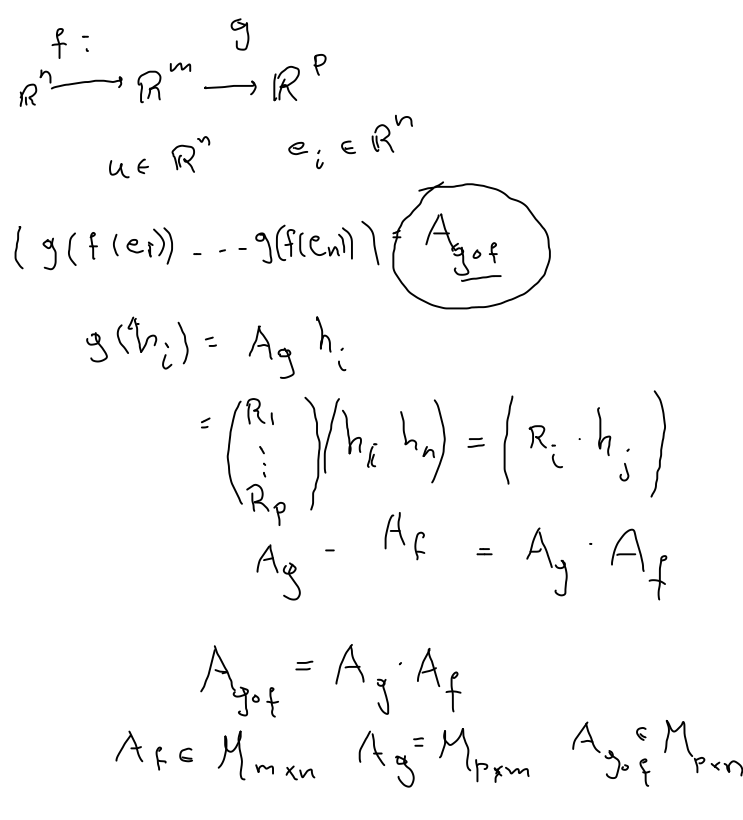 f : g
ℝⁿ ⟶ ℝᵐ ⟶ ℝᵖ
u ∈ ℝⁿ eᵢ ∈ ℝⁿ
( g(f(e₁)) - - - g(f(eₙ)) ) = A_{g∘f}
g(hᵢ) = A_g hᵢ
= (R₁ ⋮ R_p) (h₁ hₙ) = (Rᵢ · hⱼ)
A_g - A_f = A_g · A_f
A_{g∘f} = A_g · A_f
A_f ∈ M_{m×n} A_g = M_{p×m} A_{g∘f} ∈ M_{p×n}